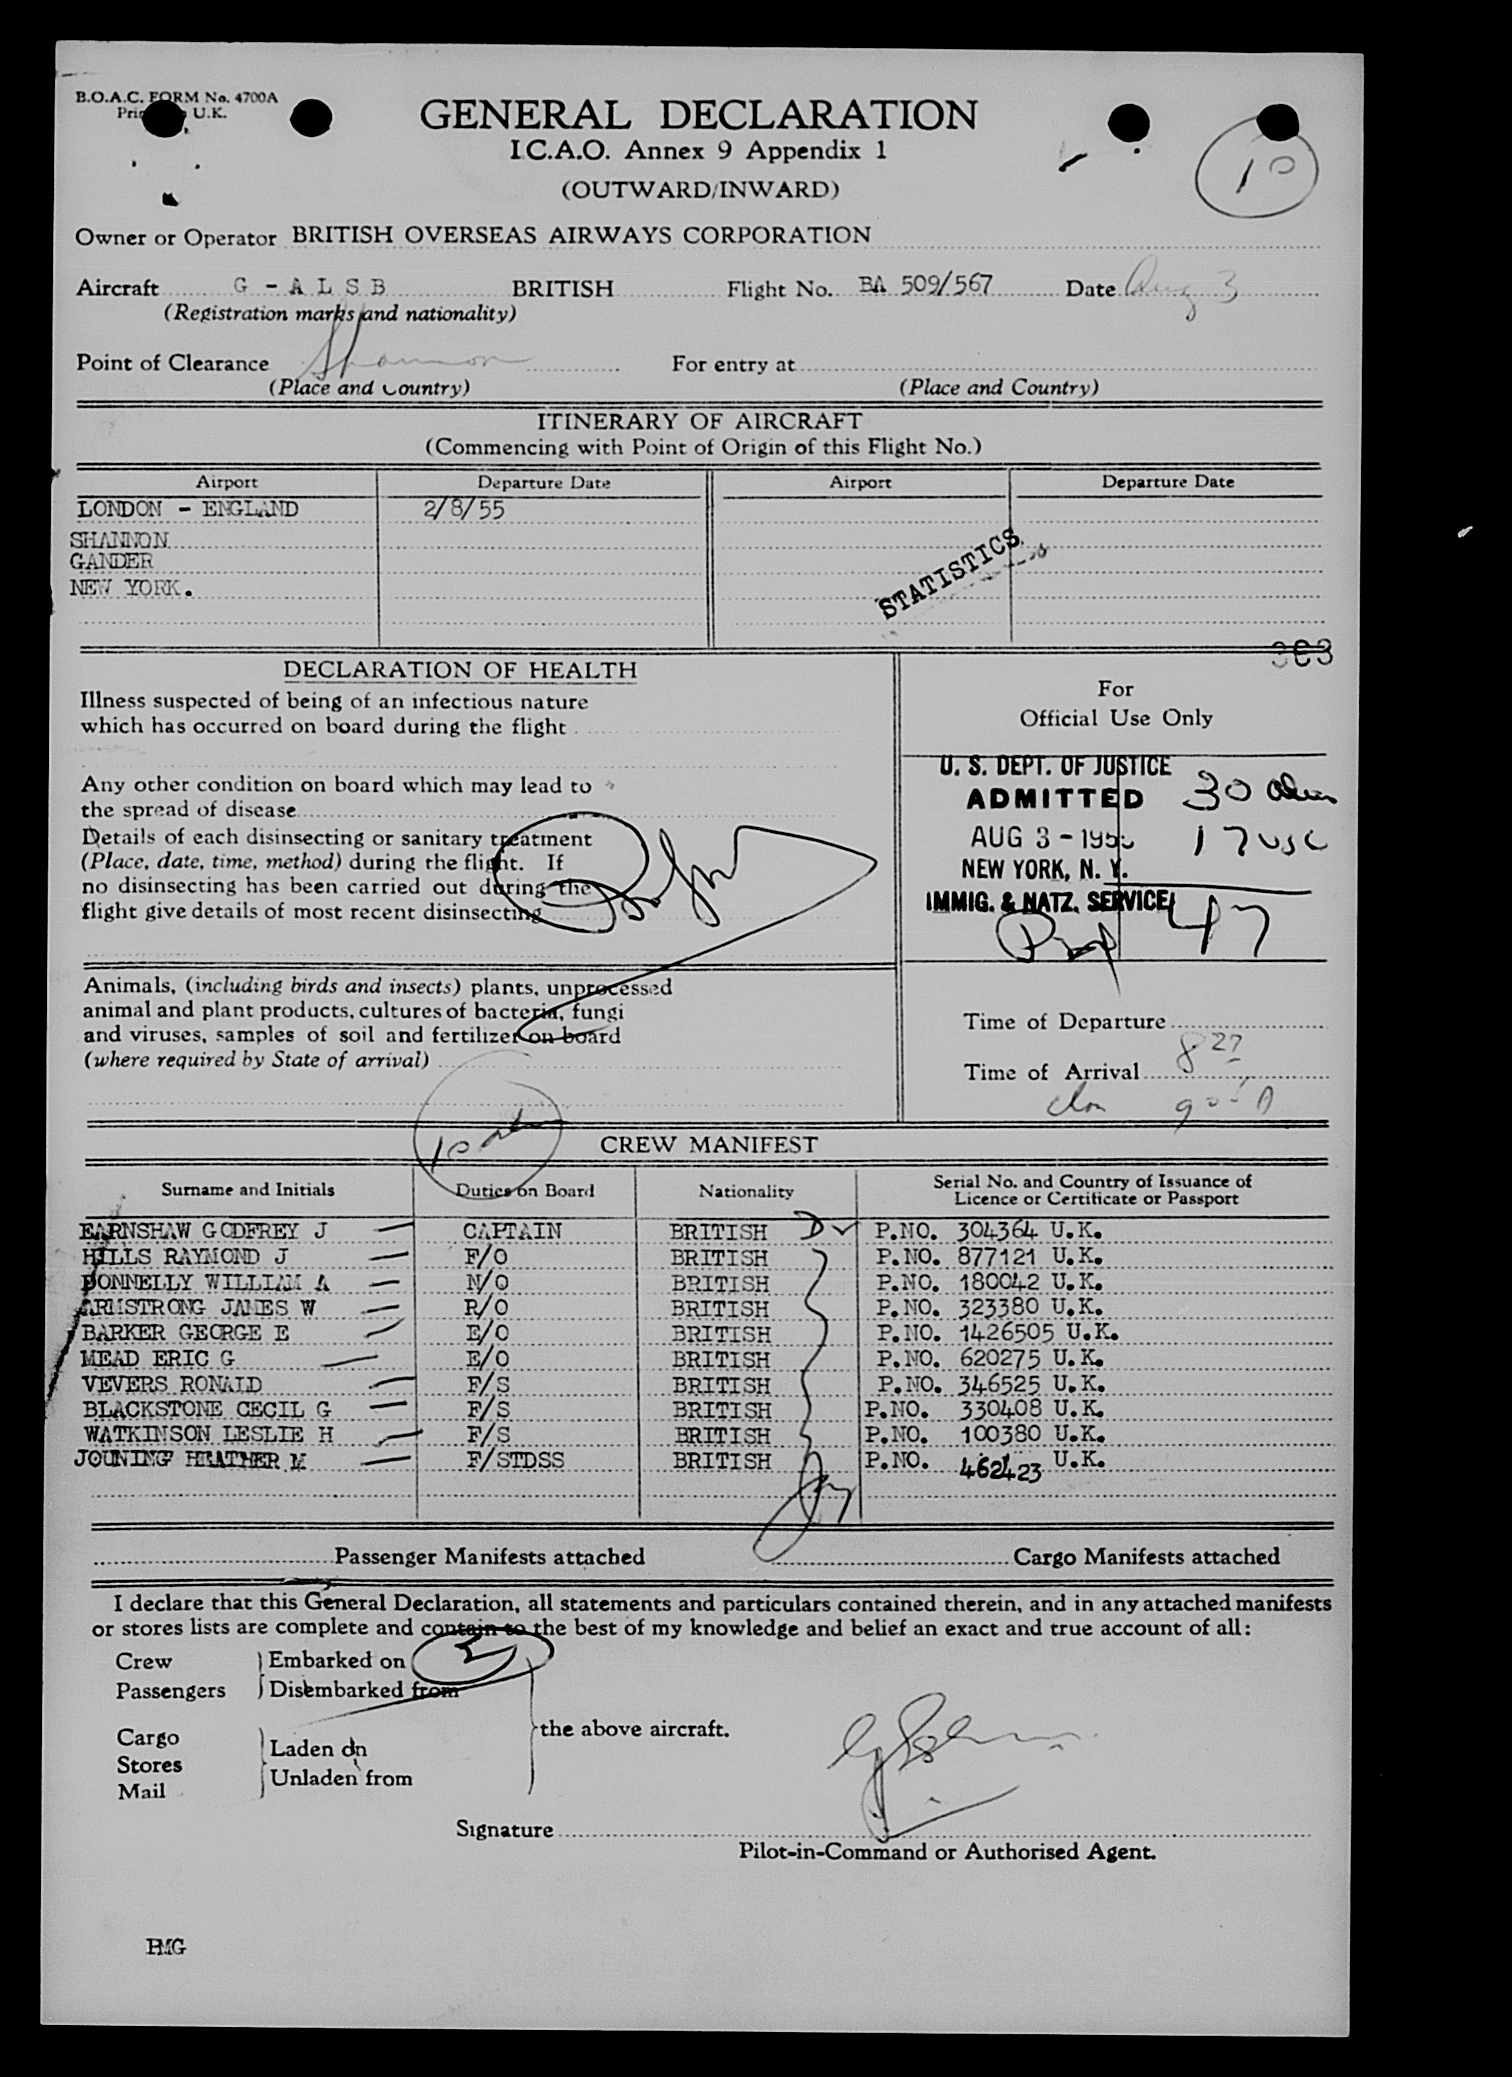 B.O.A.C. FORM No. 4700A
U.K.
GENERAL DECLARATION
I.C.A.O. Annex 9 Appendix 1
(OUTWARD/INWARD)
10
Owner or Operator BRITISH OVERSEAS AIRWAYS CORPORATION
Aircraft G - A L S B BRITISH Flight No. BA 509/567 Date Aug 3
(Registration marks and nationality)
Point of Clearance Shannon For entry at
(Place and Country) (Place and Country)
ITINERARY OF AIRCRAFT
(Commencing with Point of Origin of this Flight No.)
Airport Departure Date Airport Departure Date
LONDON - ENGLAND 2/8/55
SHANNON
GANDER
NEW YORK.
STATISTICS
DECLARATION OF HEALTH
Illness suspected of being of an infectious nature
which has occurred on board during the flight
Any other condition on board which may lead to
the spread of disease
Details of each disinsecting or sanitary treatment
(Place, date, time, method) during the flight. If
no disinsecting has been carried out during the
flight give details of most recent disinsecting
Animals, (including birds and insects) plants, unprocessed
animal and plant products, cultures of bacteria, fungi
and viruses, samples of soil and fertilizer on board
(where required by State of arrival)
For
Official Use Only
U. S. DEPT. OF JUSTICE
ADMITTED 30
AUG 3 - 195 17 usc
NEW YORK, N. Y.
IMMIG. & NATZ. SERVICE
47
Time of Departure
Time of Arrival 8 27
CREW MANIFEST
Surname and Initials Duties on Board Nationality Serial No. and Country of Issuance of
Licence or Certificate or Passport
EARNSHAW GODFREY J CAPTAIN BRITISH P.NO. 304364 U.K.
HILLS RAYMOND J F/O BRITISH P.NO. 877121 U.K.
DONNELLY WILLIAM A N/O BRITISH P.NO. 180042 U.K.
ARMSTRONG JAMES W R/O BRITISH P.NO. 323380 U.K.
BARKER GEORGE E E/O BRITISH P.NO. 1426505 U.K.
MEAD ERIC G E/O BRITISH P.NO. 620275 U.K.
VEVERS RONALD F/S BRITISH P.NO. 346525 U.K.
BLACKSTONE CECIL G F/S BRITISH P.NO. 330408 U.K.
WATKINSON LESLIE H F/S BRITISH P.NO. 100380 U.K.
JOUNING HEATHER M F/STDSS BRITISH P.NO. 462423 U.K.
Passenger Manifests attached Cargo Manifests attached
I declare that this General Declaration, all statements and particulars contained therein, and in any attached manifests
or stores lists are complete and contain to the best of my knowledge and belief an exact and true account of all:
Crew Embarked on
Passengers Disembarked from
the above aircraft.
Cargo
Laden on
Stores
Unladen from
Mail
Signature
Pilot-in-Command or Authorised Agent.
HMG